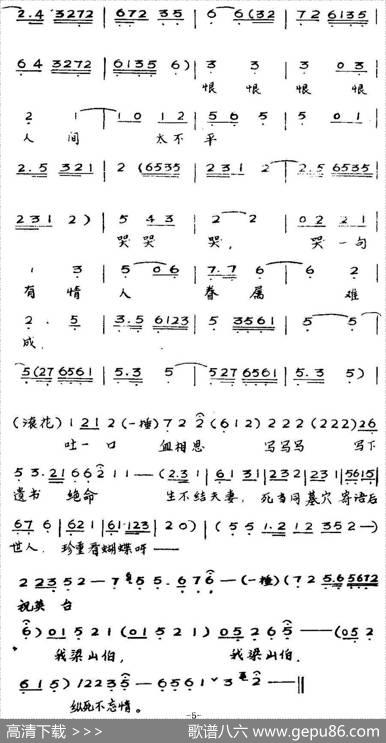 2.4 3272 | 672 35 | 6 6(32 | 72 6135 |
64 3272 | 6135 6) | 3 3 | 3 03 |
恨 恨 恨 恨
2 1 | 10 12 | 565 | 5 01 |
人 间 太不平
2.5 321 | 2 (6535 | 231 2 | 2.5 6535 |
231 2) | 5 43 | 2 2 | 02 21 |
哭 哭 哭, 哭 一句
1 3 | 5 06 | 7.7 6 | 6 2 |
有 情 人 眷 属 难
2. 5 | 3.5 6123 | 5 3561 | 5 5 |
成.
5(27 6561 | 5.3 5 | 527 6561 | 5.3 5) |
(滚花) 1 212 (一捶) 722 (612) 222 (222) 26
吐一口 血相思 写写写 写下
53.216621 1 — (2.31 | 61 31 | 232 | 231 | 5615 |
遗书 绝命 生不结夫妻, 死当同墓穴 寄语后
676 | 621 | 61.123 | 20) | (551.212352 —
世人, 珍重看蝴蝶呀——
22352 — 7 55.676 — (一捶) (72 5.6 5672
祝英 台
6) 01521 (01521) 05265 — (052
我梁山伯, 我梁山伯,
615) 12235 — 6561 3 2 — ||
纵死不忘情。
-5-
高清下载 >>>
歌谱八六 www.gepu86.com